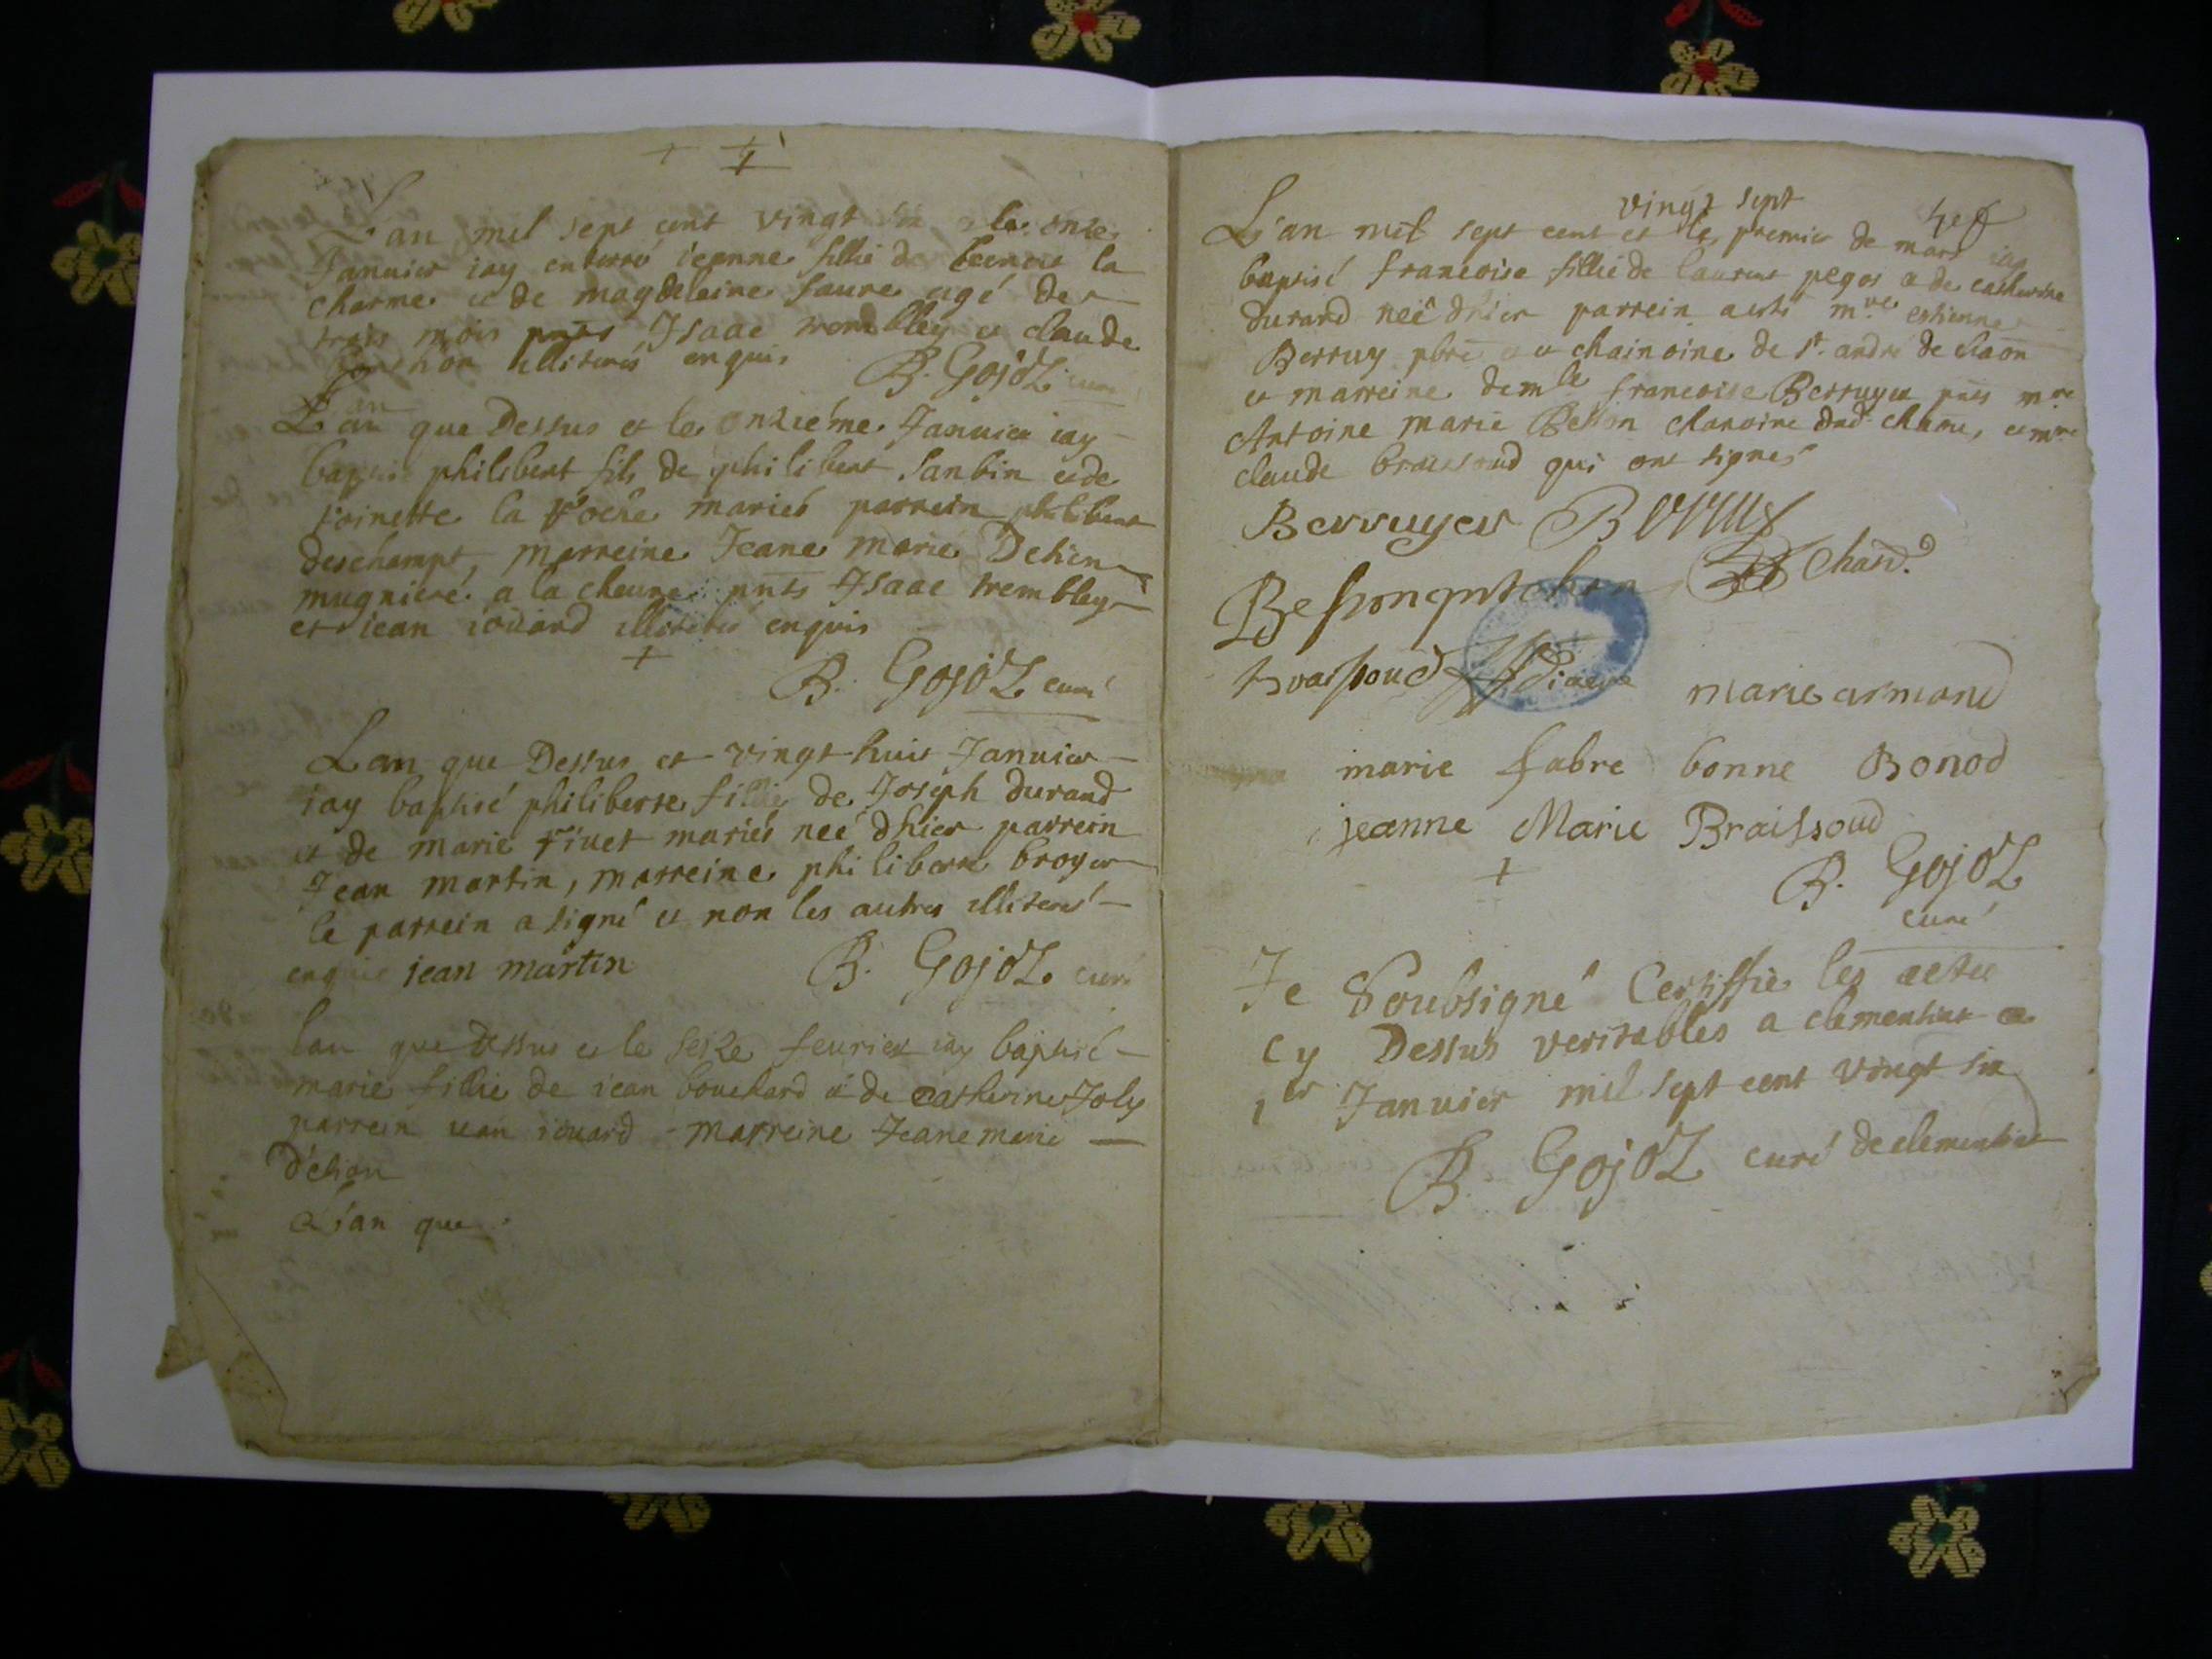 L'an mil sept cent vingt six le onze
Januier iay enterré ieanne fillie de benoit la
charme et de magdeleine faure agé de
trois mois pnts Isaac trembley et claude
illiterés enquis B. Gojoz curé
L'an que Dessus et le onziéme Januier iay
baptisé philibert fils de philibert Sanbin et de
toinette la roche mariés parrein philibert
deschampt, marreine Jeane marie Dehien
mugniere a la cheure pnts Isaac trembley
et iean iouard illiterés enquis
B. Gojoz curé
Lan que Dessus et vingt huit Januier
iay baptisé philiberte fillie de Joseph durand
et de marie riuet mariés neé dhier parrein
Jean martin, marreine philiberte broyer
le parrein a signé et non les autres illiterés
enquis jean martin B. Gojoz curé
lan que dessus et le seize feurier iay baptisé
marie fillie de iean bouchard et de catherine Joly
parrein iean iouard marreine Jeane marie
Dehien
L'an que
vingt sept
L'an mil sept cent et le premier de mars iay
baptisé francoise fillie de laurent pegos et de catherine
durand neé dhier parrein a esté mre estienne
Berruy pbre et chainoine de st. andré de
et marreine demle francoise Berruyer pnts mre
Antoine marie Besson chanoine dud. et mre
claude braissoud qui ont signés
Berruyer Berruy
Besson
braissoud marie armand
marie fabre bonne Bonod
jeanne Marie Braissoud
B. Gojoz
curé
Je Soubsigné Certiffie les actes
Cy Dessus veritables a clementiat ce
1er Januier mil sept cent vingt six
B. Gojoz curé de clementiat